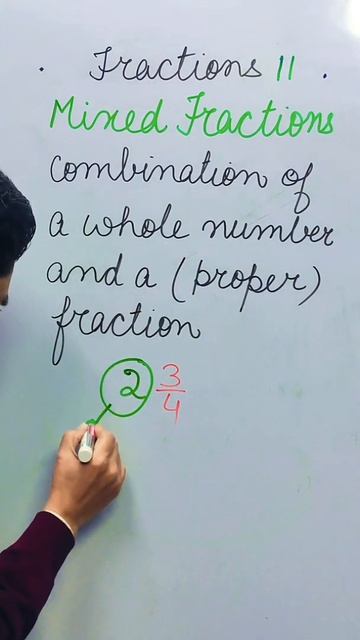 . Fractions 11 .
Mixed Fractions
combination of
a whole number
and a (proper)
fraction
2 3/4